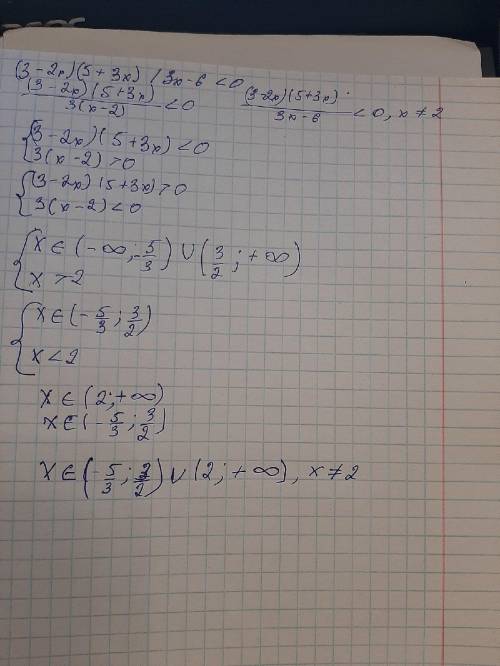 (3-2x)(5+3x) / 3x-6 < 0
(3-2x)(5+3x) / 3(x-2) < 0    (3-2x)(5+3x) / 3x-6 < 0, x ≠ 2
{ (3-2x)(5+3x) < 0
3(x-2) > 0
{ (3-2x)(5+3x) > 0
3(x-2) < 0
{ x ∈ (-∞, -5/3) ∪ (3/2; +∞)
x > 2
{ x ∈ (-5/3; 3/2)
x < 2
x ∈ (2; +∞)
x ∈ (-5/3; 3/2)
x ∈ (-5/3; 3/2) ∪ (2; +∞), x ≠ 2